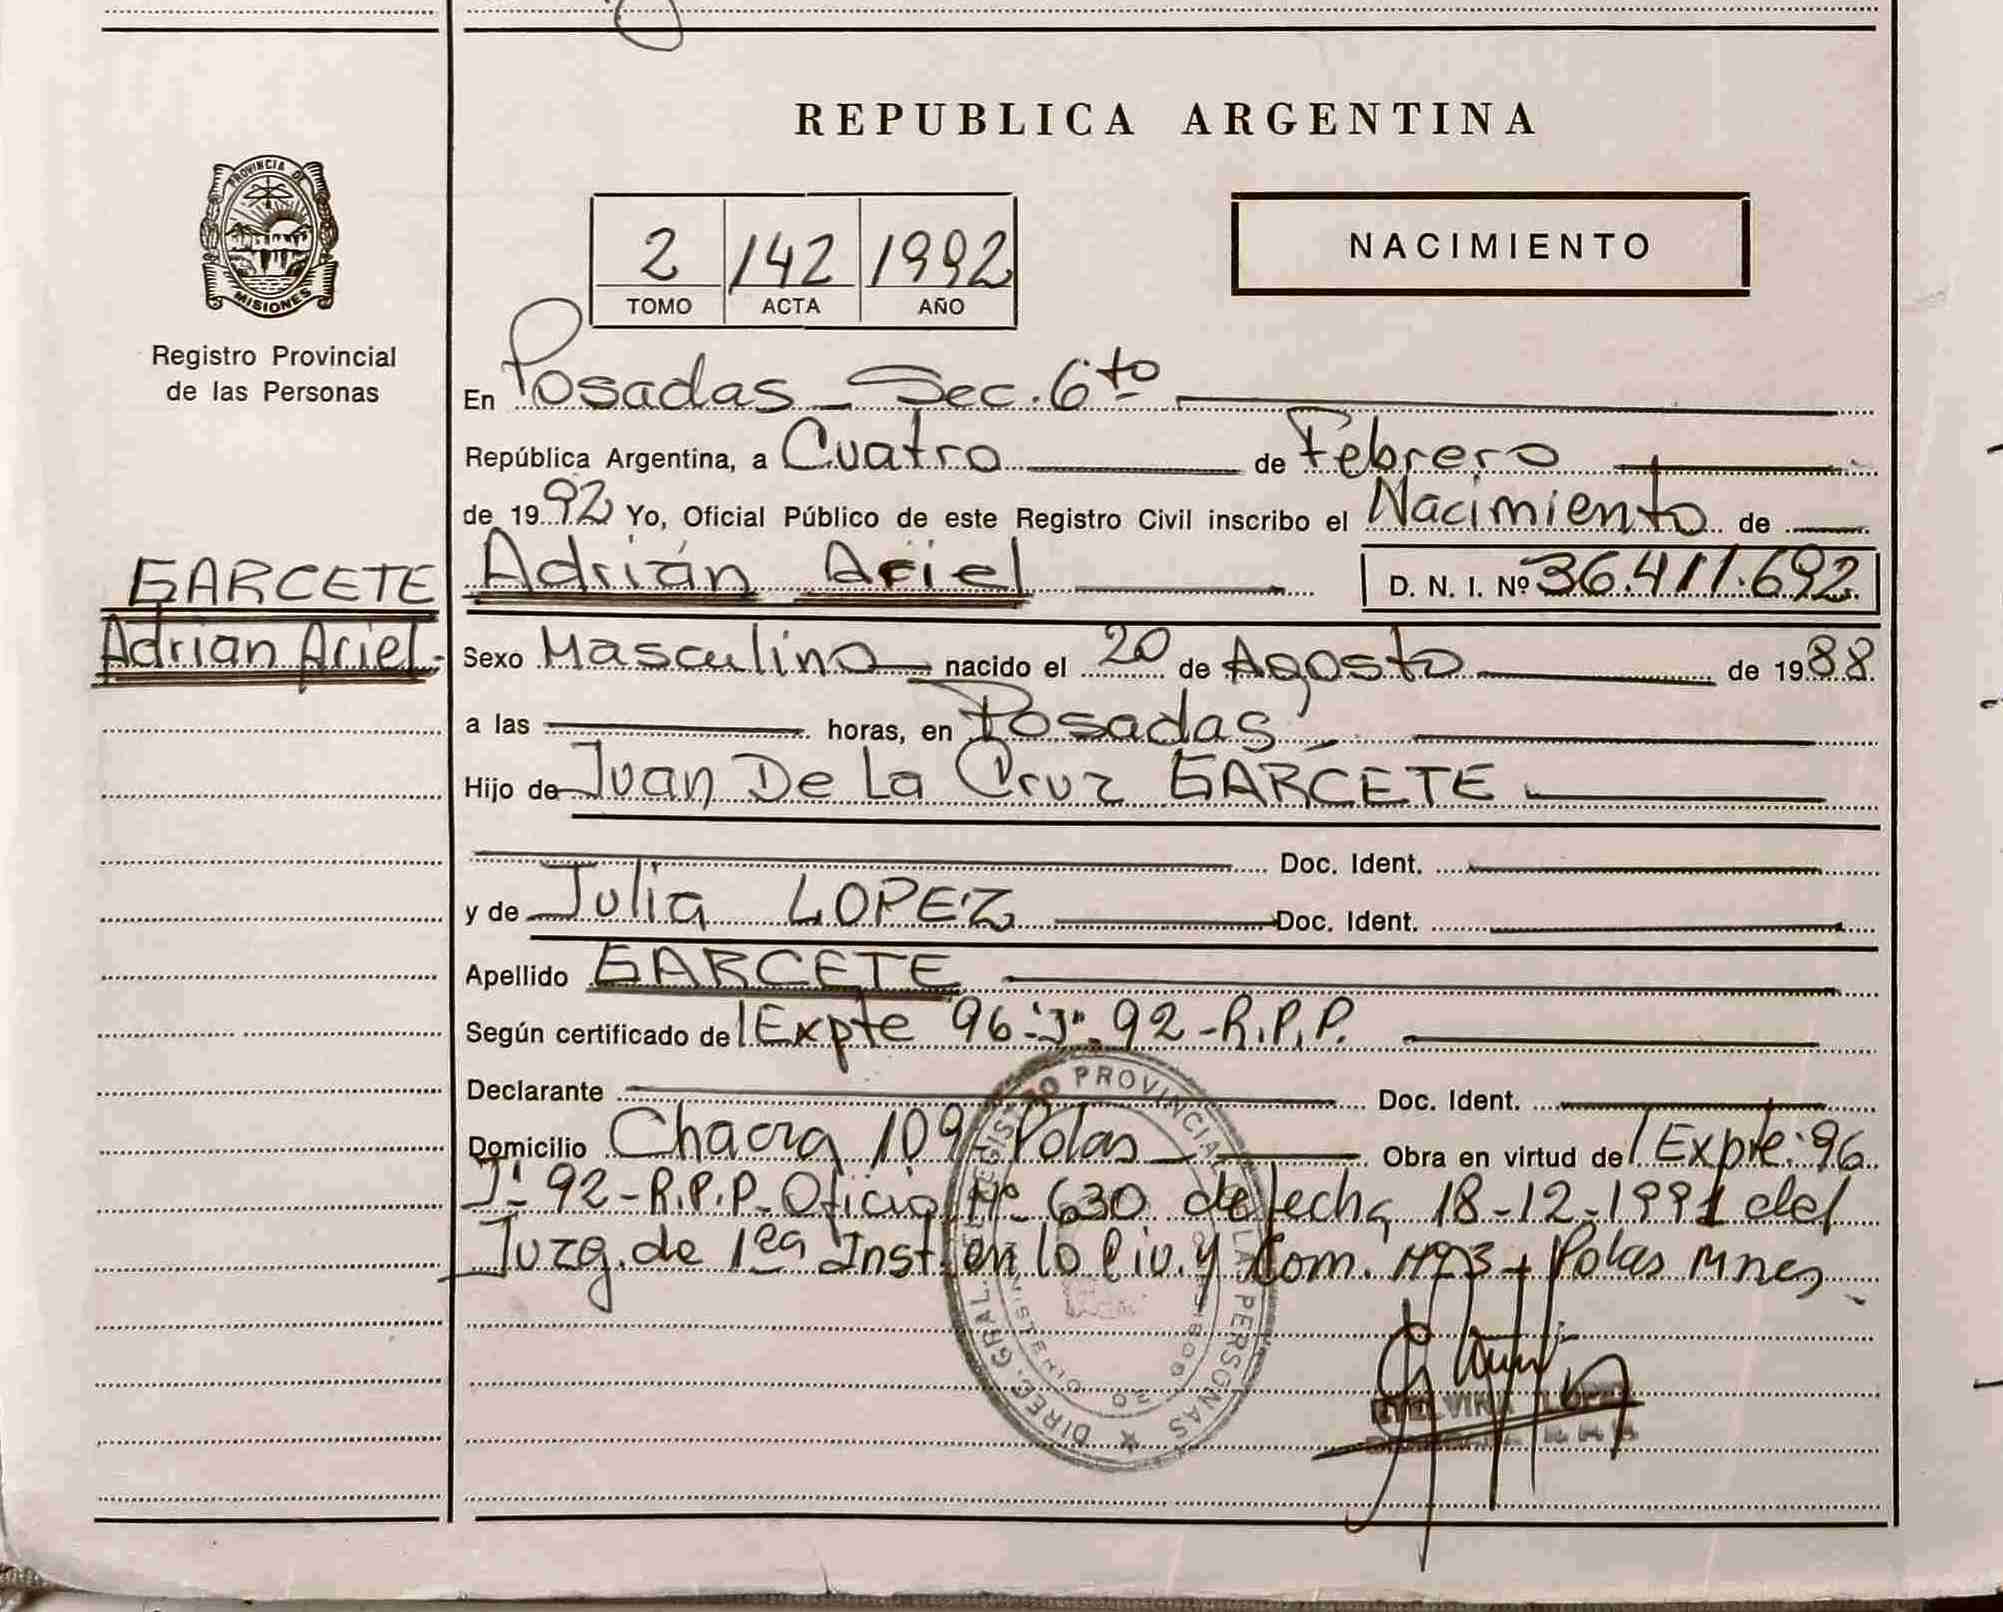 REPUBLICA ARGENTINA
PROVINCIA DE
MISIONES
Registro Provincial
de las Personas
2 142 1992
TOMO ACTA AÑO
NACIMIENTO
En Posadas - Sec. 6to
República Argentina, a Cuatro de Febrero
de 1992 Yo, Oficial Público de este Registro Civil inscribo el Nacimiento de
GARCETE
Adrian Ariel.
Adrián Ariel D. N. I. Nº 36.411.692
Sexo Masculino nacido el 20 de Agosto de 1988
a las horas, en Posadas
Hijo de Juan De La Cruz GARCETE
Doc. Ident.
y de Julia LOPEZ Doc. Ident.
Apellido GARCETE
Según certificado de Expte 96-"J"-92-R.P.P.
Declarante Doc. Ident.
Domicilio Chacra 109 - Pdas Obra en virtud de Expte: 96
"J" 92-R.P.P- Oficio Nº 630 de fecha 18-12-1991 del
Juzg. de 1era Inst. en lo Civ. y Com. Nº 3 - Pdas Mnes
DIREC. GRAL. REGISTRO PROVINCIAL DE LAS PERSONAS
LOPEZ